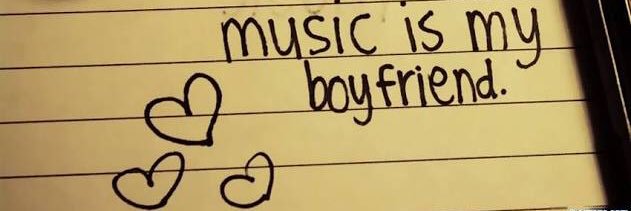 music is my
boyfriend.